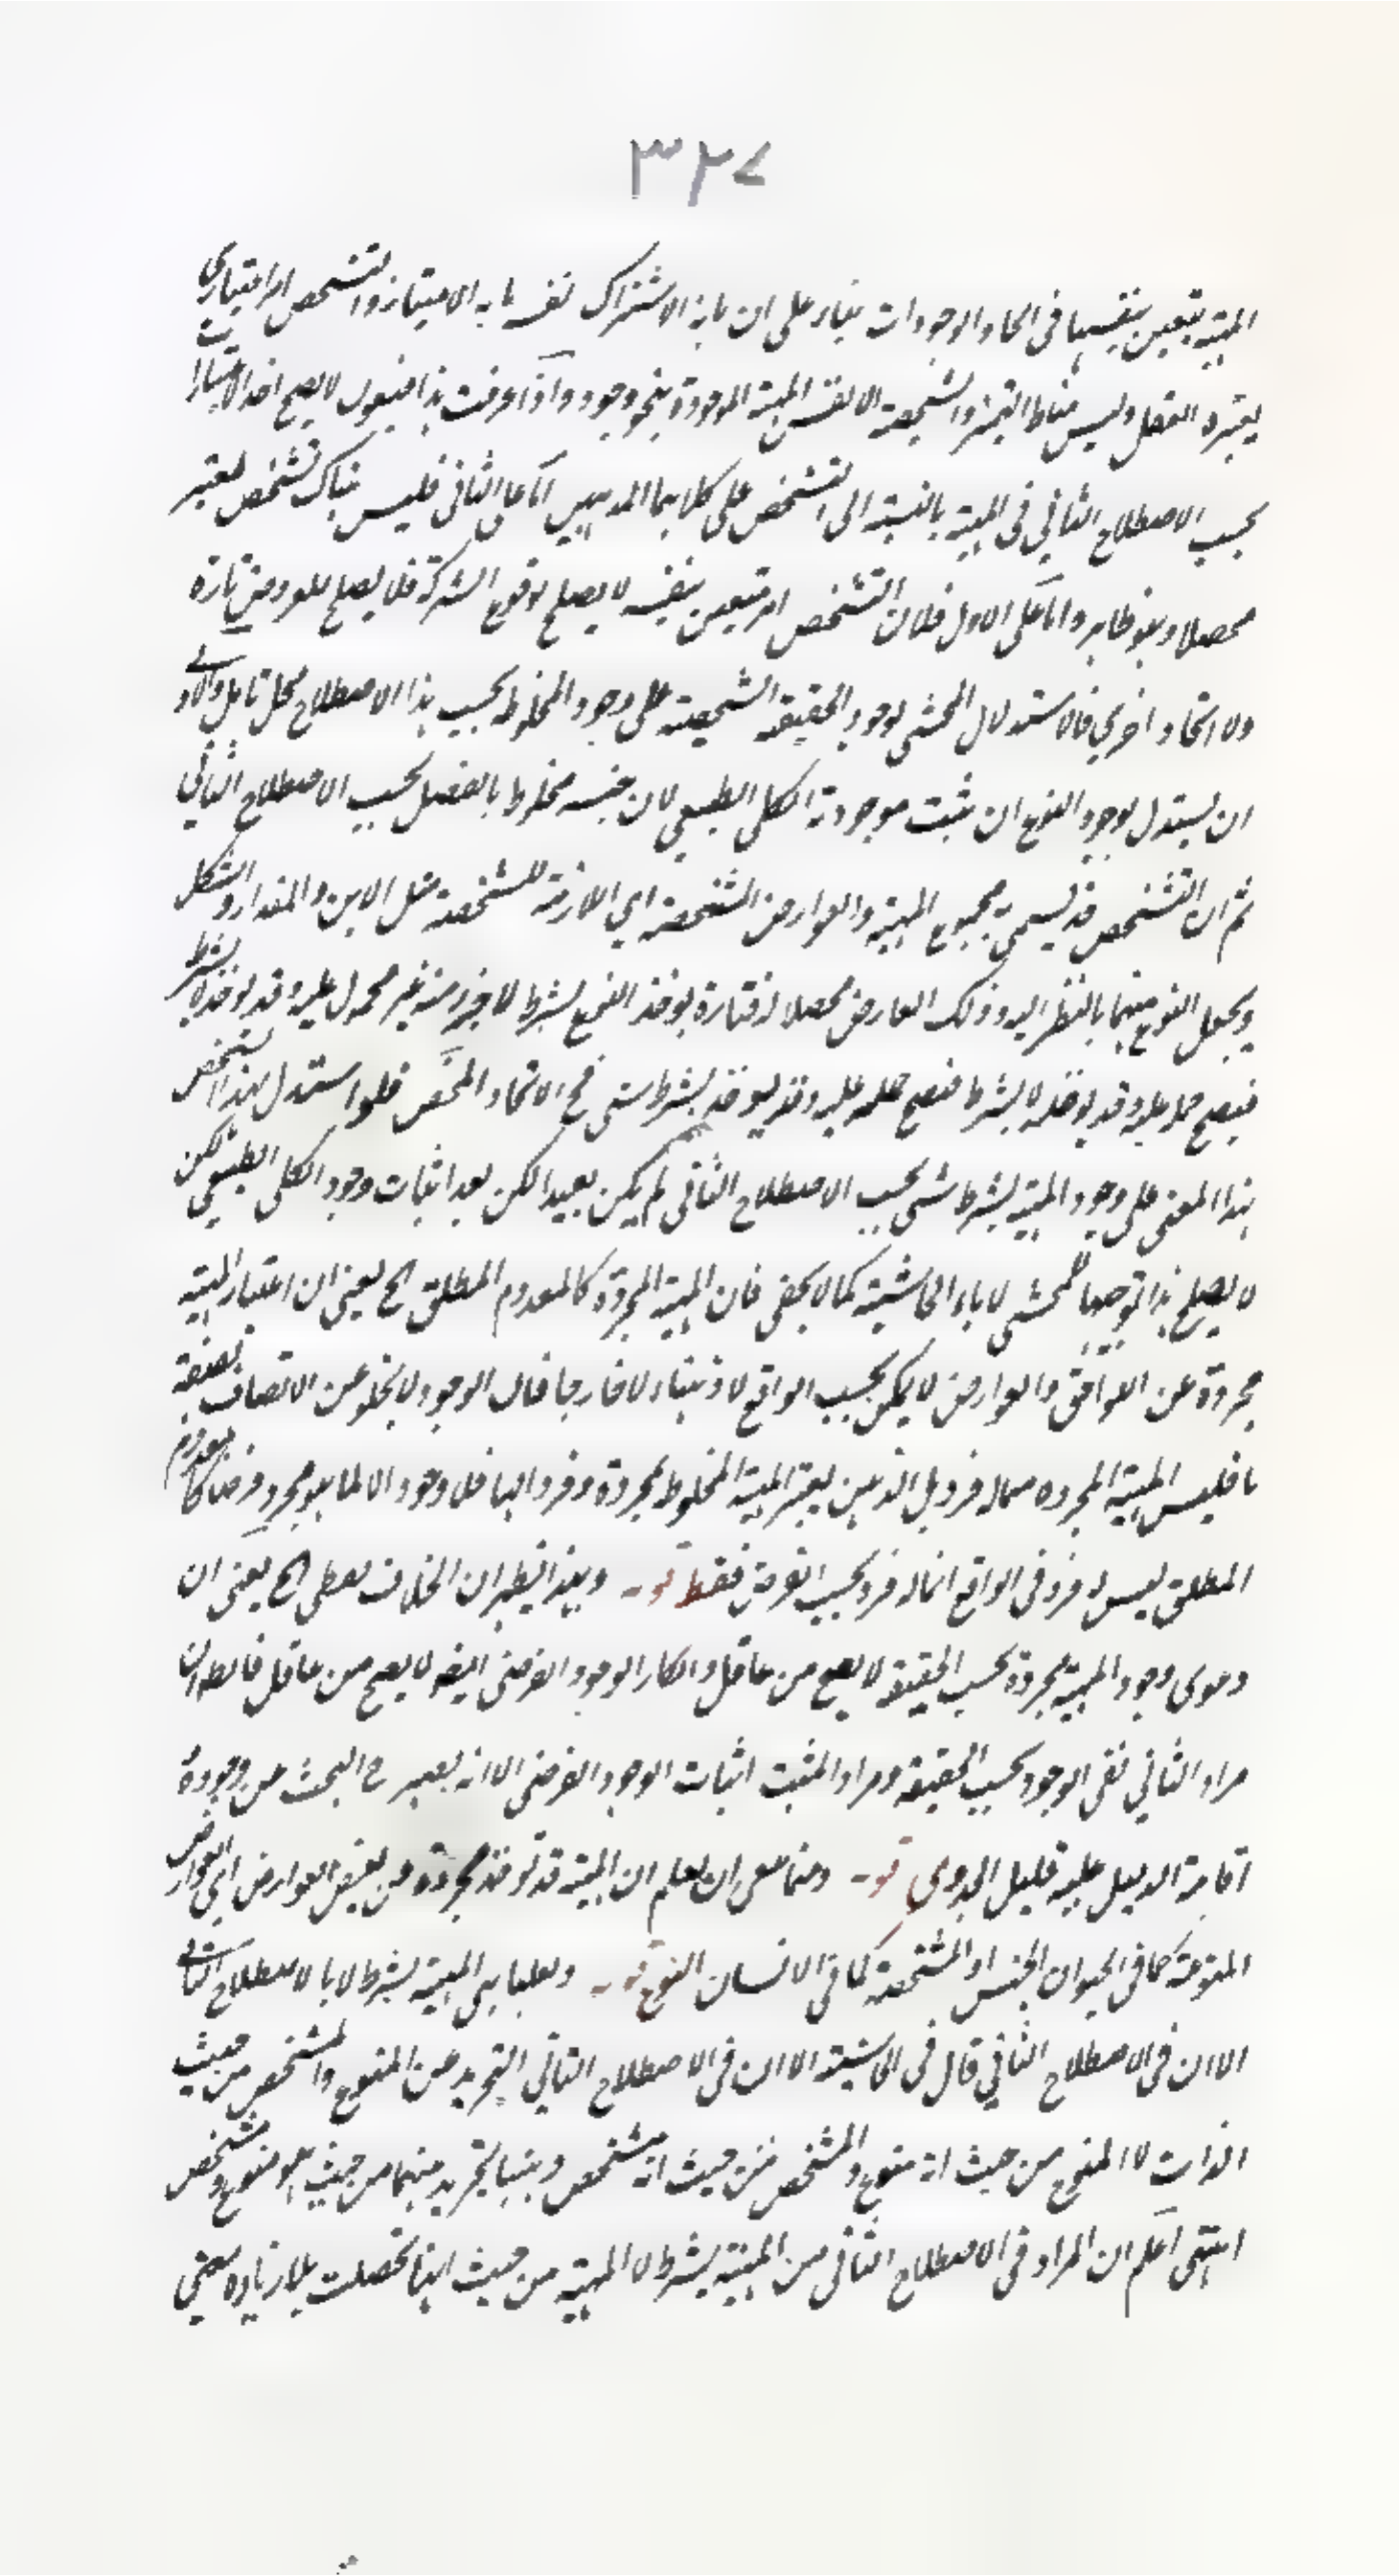 ٣٢٧
المهية يتعين بنفسها في انحاء الوجودات بناء على ان ما به الاشتراك نفس ما به الامتياز والتشخص امر اعتباري
يعتبره العقل وليس مناط التميز والشخصية الا نفس المهية الموجودة بنحو وجود واذا عرفت هذا فنقول لا يصح اخذ الاعتبارات
بحسب الاصطلاح الثاني في المهية بالنسبة الى التشخص على كلا هما المذهبين اما على الثاني فليس هناك تشخص يعتبر
محصلا وهو ظاهر واما على الاول فلان التشخص امر متعين بنفسه لا يصلح لوقوع الشركة فلا يصلح للعروض تارة
ولا اتحاد اخرى فالاستدلال المحشي بوجود الحقيقة الشخصية على وجود المخلوط بحسب هذا الاصطلاح محل تامل والاولى
ان يستدل بوجود النوع ان ثبت موجودية الكلي الطبيعي لان جنسه مخلوط بالفصل بحسب الاصطلاح الثاني
ثم ان التشخص قد يسمى به مجموع المهية والعوارض المشخصة اي اللازمة للشخصية مثل الاين والمقدار والشكل
ويجعل النوع مبهما بالنظر اليه وذلك العارض محصلا له فتارة يوخذ النوع بشرط لا فجزء منه غير محمول عليه وقد يوخذ لا بشرط
فيصح حمله عليه وقد يوخذ لا بشرط فيصح حمله عليه وقد يوخذ بشرط شي فح الاتحاد المحض فلو استدل بهذا الشخص
بهذا المعنى على وجود المهية بشرط شي بحسب الاصطلاح الثاني لم يكن بعيدا لكن بعد اثبات وجود الكلي الطبيعي لكن
لا يصلح هذا توجيها للمحشي لاباء الحاشية كما لا يخفى فان المهية المجردة كالمعدوم المطلق الخ يعني ان اعتبار المهية
مجردة عن اللواحق والعوارض لا يمكن بحسب الواقع لا ذهنا ولا خارجا فان الوجود لا يخلو عن الاتصاف بصفة
ما فليس المهية المجردة مما له فرد بل الذهن يعتبر المهية المخلوطة مجردة وفردا لها فلا وجود الا لما هو مجرد فرضا كالمعدوم
المطلق ليس له فرد في الواقع انما له فرد بحسب الفرض فقط قوله وبهذا يظهر ان الخلاف لفظي الخ يعني ان
دعوى وجود المهية مجردة بحسب الحقيقة لا يصح من عاقل وانكار الوجود الفرضي ايضا لا يصح من عاقل فالظاهر ان
مراد الثاني نفي الوجود بحسب الحقيقة ومراد المثبت اثبات الوجود الفرضي الا انه يصير ح البحث من وجوده
اقامة الدليل عليه قليل الجدوى قوله ومما ينبغي ان يعلم ان المهية قد توخذ مجردة عن بعض العوارض اي العوارض
المنوعة كما في الحيوان الجنس او المشخصة كما في الانسان النوع قوله ولعلها هي المهية بشرط لا بالاصطلاح الثاني
الا ان في الاصطلاح الثاني قال في الحاشية الا ان في الاصطلاح الثاني التجريد عن المنوع والمشخص من حيث
الذات لا المنوع من حيث انه منوع والمشخص من حيث انه مشخص وههنا التجريد منهما من حيث هو منوع ومشخص
انتهى اعلم ان المراد في الاصطلاح الثاني من المهية بشرط لا المهية من حيث انها تحصلت بلا زيادة معنى